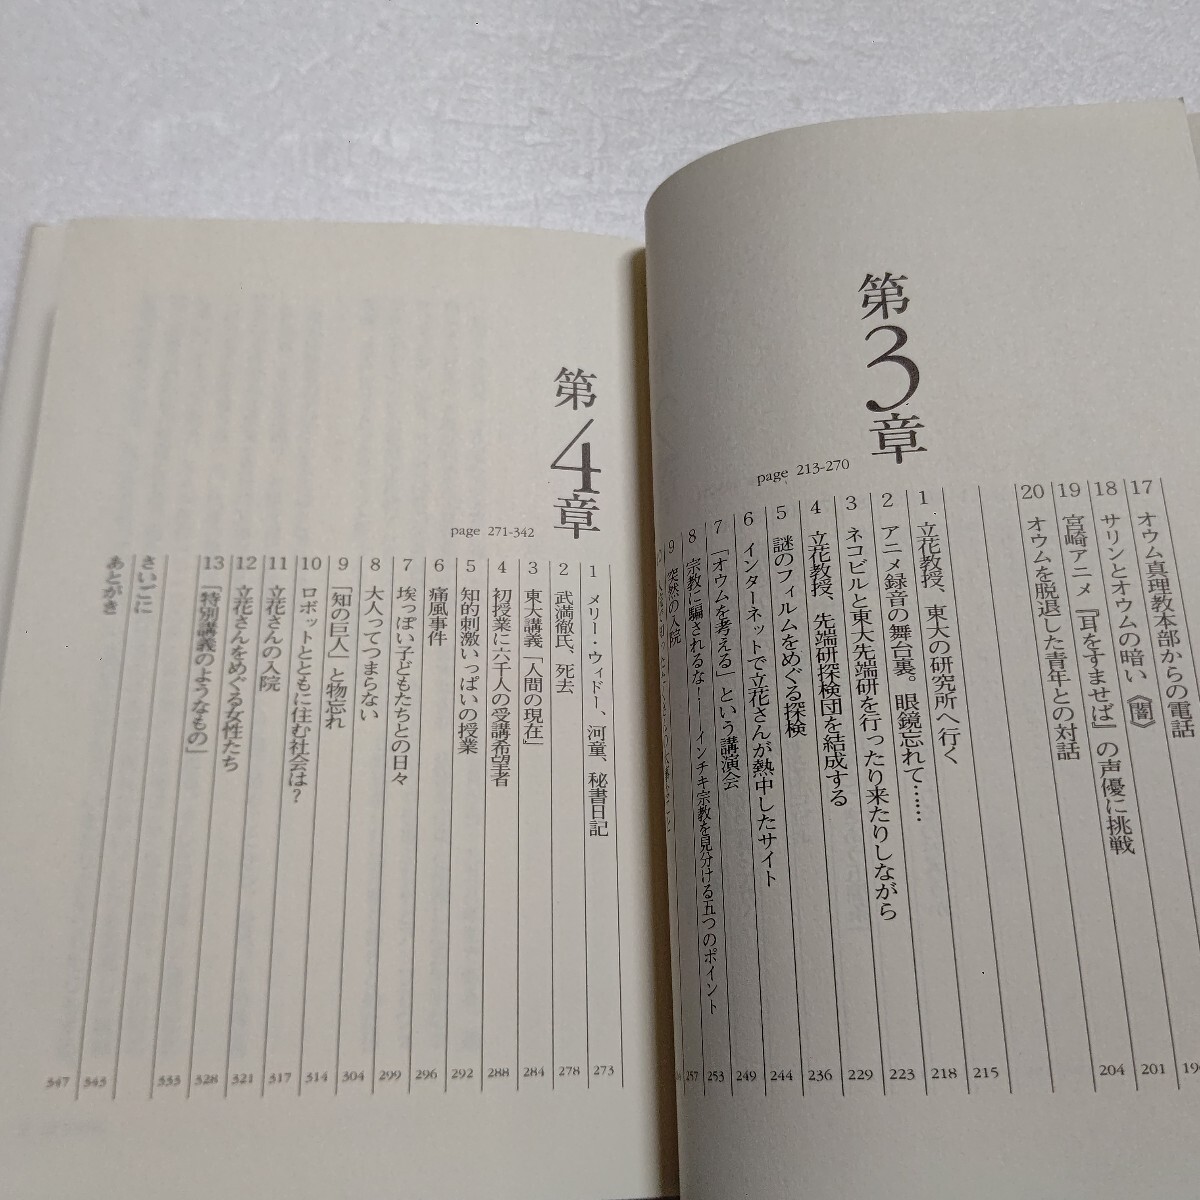 17 オウム真理教本部からの電話
18 サリンとオウムの暗い《闇》
19 宮崎アニメ『耳をすませば』の声優に挑戦 201
20 オウムを脱退した青年との対話 204
第3章
page 213-270
1 立花教授、東大の研究所へ行く 215
2 アニメ録音の舞台裏。眼鏡忘れて…… 218
3 ネコビルと東大先端研を行ったり来たりしながら 223
4 立花教授、先端研探検団を結成する 229
5 謎のフィルムをめぐる探検 236
6 インターネットで立花さんが熱中したサイト 244
7 「オウムを考える」という講演会 249
8 宗教に騙されるな！――インチキ宗教を見分ける五つのポイント 253
9 突然の入院 257
第4章
page 271-342
1 メリー・ウィドー、河童、秘書日記 273
2 武満徹氏、死去 278
3 東大講義「人間の現在」 284
4 初授業に六千人の受講希望者 288
5 知的刺激いっぱいの授業 292
6 痛風事件 296
7 埃っぽい子どもたちとの日々 299
8 大人ってつまらない 304
9 「知の巨人」と物忘れ 314
10 ロボットとともに住む社会は？ 317
11 立花さんの入院 321
12 立花さんをめぐる女性たち 328
13 「特別講義のようなもの」 333
さいごに 343
あとがき 347